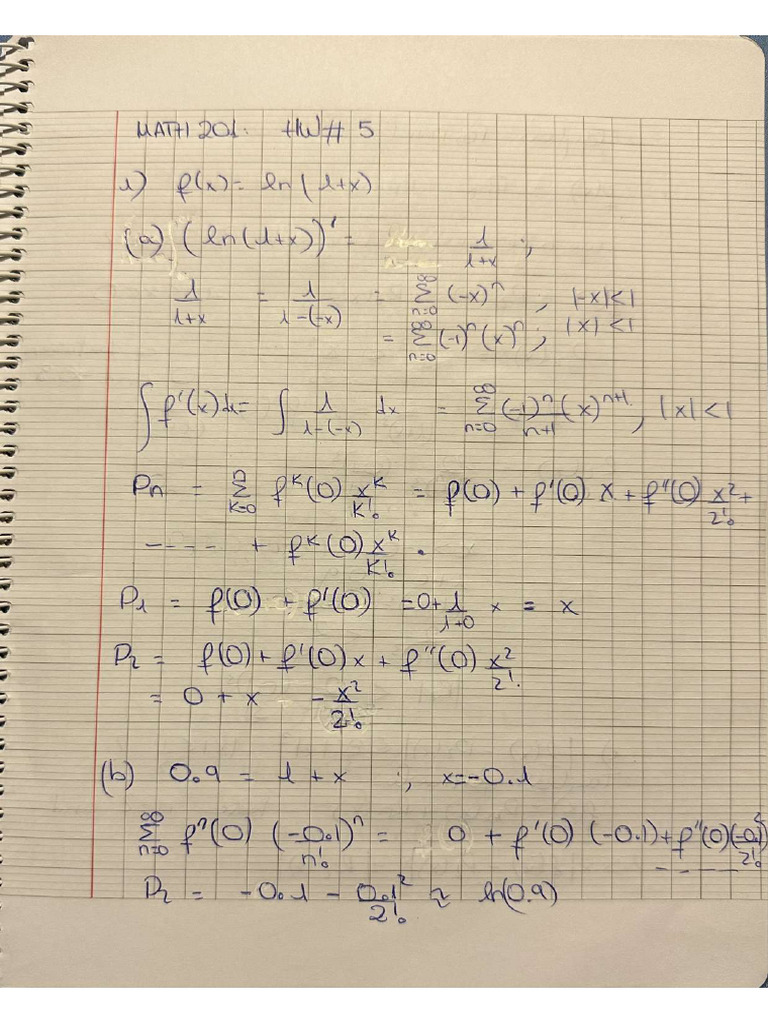 MATH 201. HW# 5
1) f(x) = ln(1+x)
(a) (ln(1+x))' = 1/(1+x) ;
1/(1+x) = 1/(1-(-x)) = ∑_{n=0}^{∞} (-x)^n , |-x|<1
= ∑_{n=0}^{∞} (-1)^n (x)^n ; |x|<1
∫ f'(x)dx = ∫ 1/(1-(-x)) dx = ∑_{n=0}^{∞} (-1)^n/(n+1) (x)^{n+1} , |x|<1
Pn = ∑_{K=0}^{n} f^K(0) x^K/K! = f(0) + f'(0) x + f''(0) x²/2! +
---- + f^K(0) x^K/K! .
P1 = f(0) + f'(0) = 0 + 1/(1+0) x = x
P2 = f(0) + f'(0) x + f''(0) x²/2!
= 0 + x - x²/2!
(b) 0.9 = 1 + x ; x = -0.1
∑_{n=0}^{∞} f^n(0) (-0.1)^n/n! = 0 + f'(0) (-0.1) + f''(0) (-0.1)²/2!
- -----
P2 = -0.1 - 0.1²/2! ≈ ln(0.9)